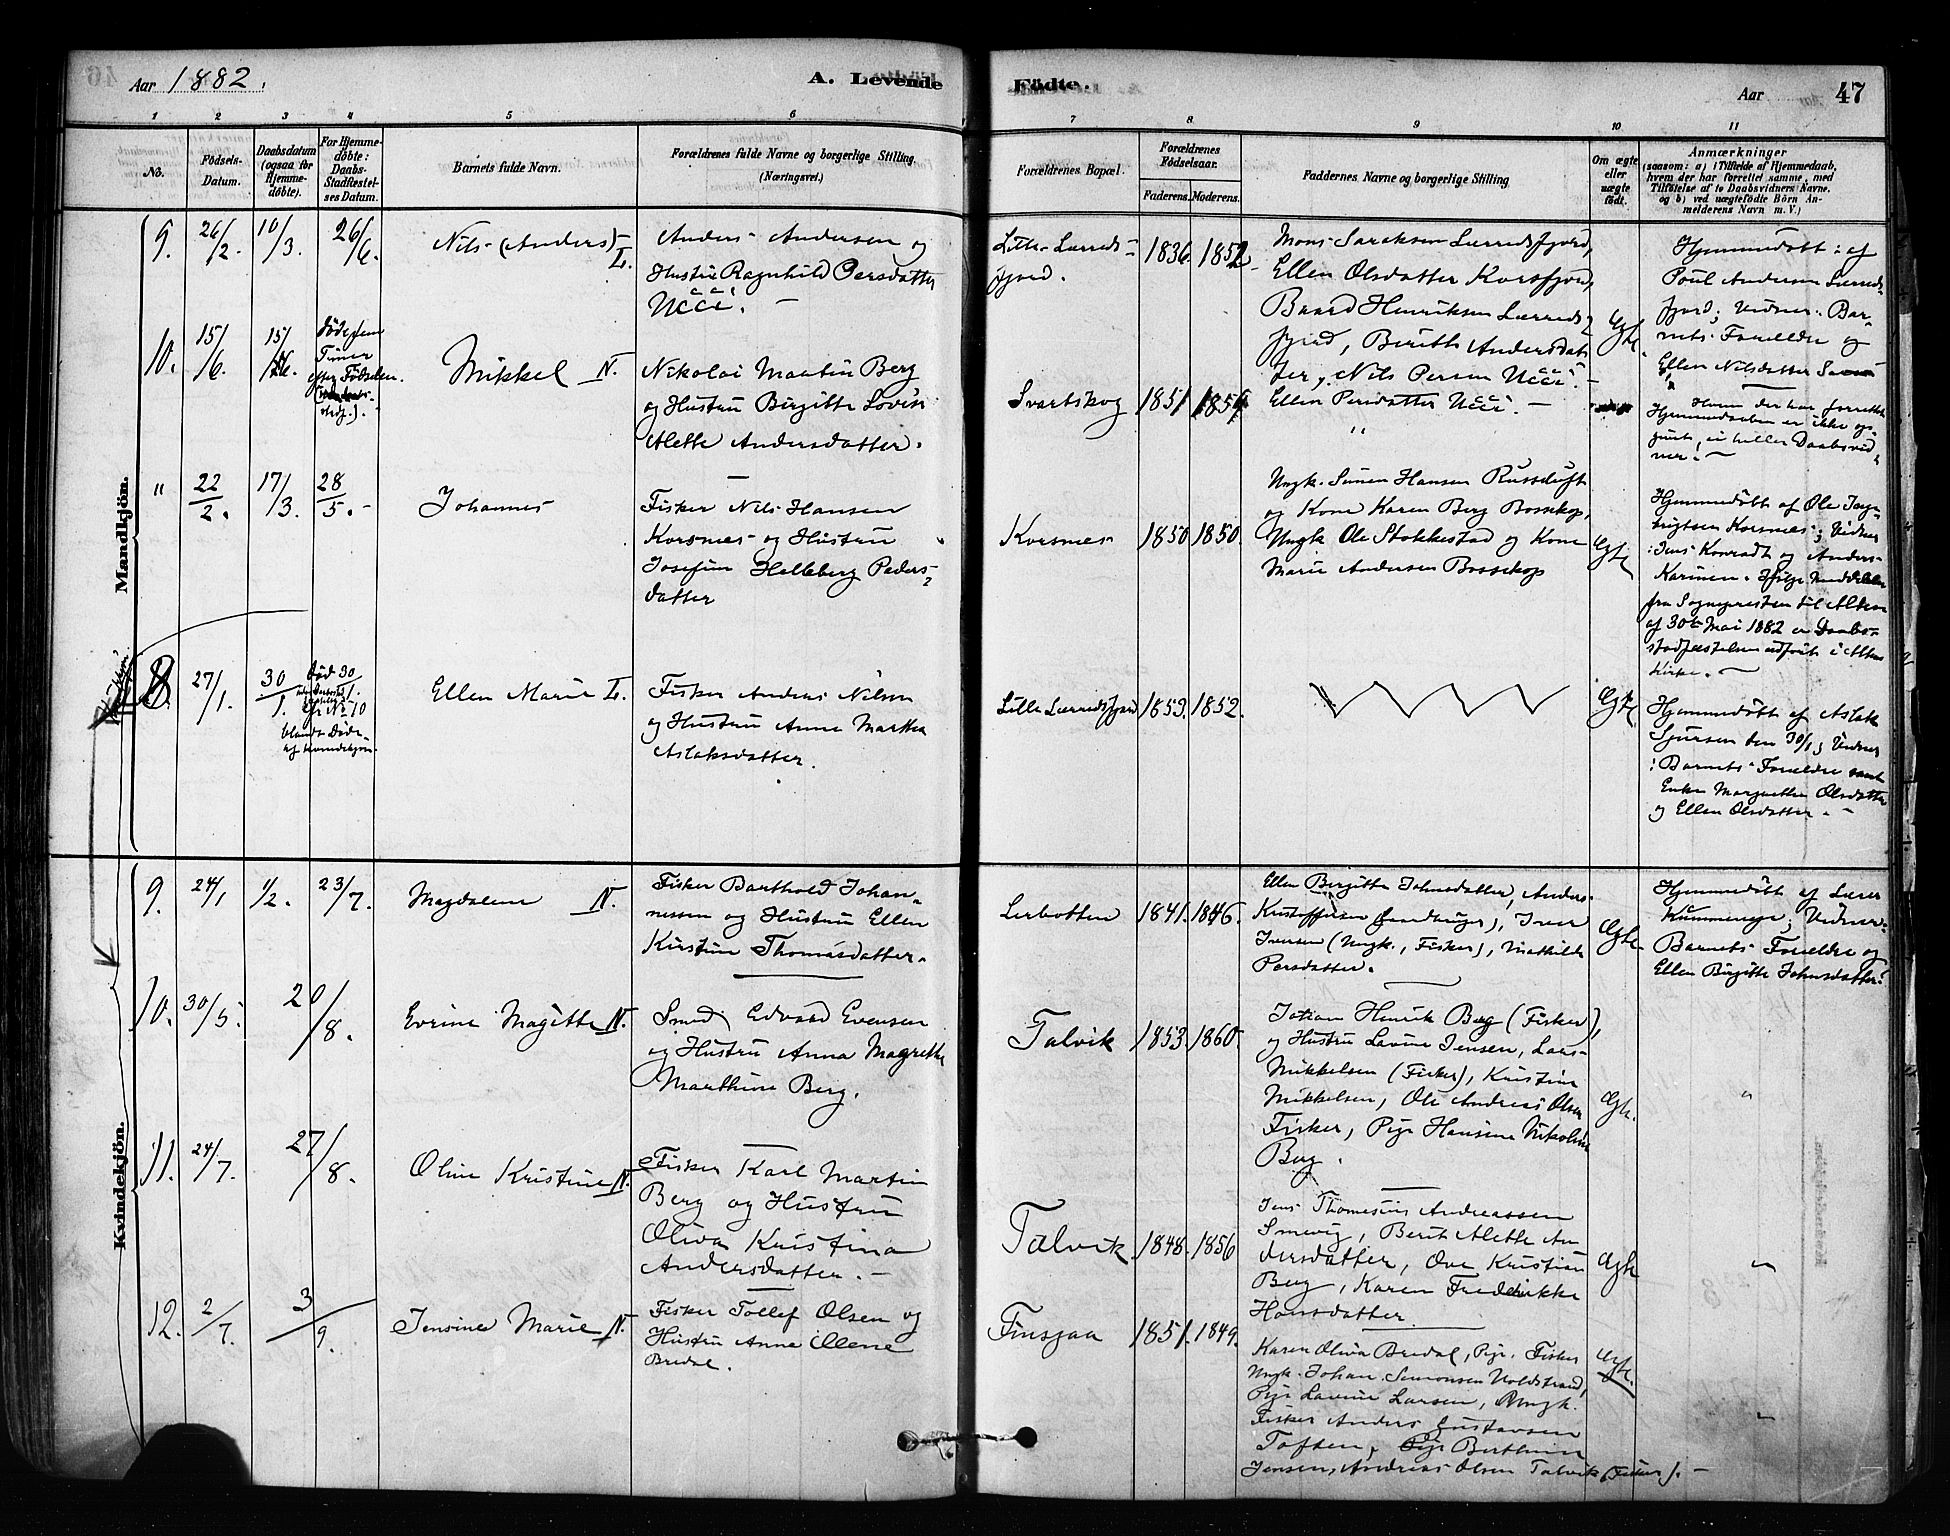 Aar 1882.
A. Levende
Födte.
Aar
47
1
2
3
4
5
6
7
8
9
10
11
No.
Födsels-
Datum.
Daabsdatum
(ogsaa for
Hjemme-
döbte).
For Hjemme-
döbte:
Daabs-
Stadfæstel-
ses Datum.
Barnets fulde Navn.
Forældrenes fulde Navne og borgerlige Stilling.
(Næringsvei.)
Forældrenes Bopæl.
Forældrenes
Födselsaar.
Faderens.
Moderens.
Faddernes Navne og borgerlige Stilling
Om ægte
eller
uægte
födt.
Anmærkninger
(saasom: a) i Tilfælde af Hjemmedaab,
hvem der har forrettet samme, med
Tilföielse af to Daabsvidners Navne,
og b) ved uægtefödte Börn An-
melderens Navn m. V.)
Mandkjön.
9.
26/2.
10/3.
26/6.
Nils (Anders) L.
Anders Andersen og
Hustru Ragnhild Persdatter
Ucci. —
Lille Lerreds-
fjord.
1836.
1852
Mons Saraksen Lerredsfjord,
Ellen Olsdatter Korsfjord,
Baard Henriksen Lerreds-
fjord, Berith Andersdat-
ter, Nils Persen Ucci. —
Ellen Persdatter Ucci. —
Ægte.
Hjemmedöbt af
Poul Andersen Lerreds-
fjord; Vidner: Bar-
nets Forældre og
Ellen Nilsdatter
10.
15/6.
15/6.
döde fem
Timer
efter Födselen.
Mikkel N.
Nikolai Martin Berg
og Hustru Birgitte Lovise
Alette Andersdatter.
Svartskog
1851
185
"
Hvem der har forrettet
Hjemmedaaben er ikke op-
givet, ei heller Daabsvid-
ner. —
"
22/2.
17/3.
28/5. -
Johannes
Fisker Nils Hansen
Korsnes og Hustru
Josefine Helleberg Peders-
datter
Korsnes
1850
1850.
Ungk. Simen Hansen Russeluft
og Kone Karen Berg Bossekop,
Ungk Ole Stokkestad og Kone
Marie Andersen Bossekop
Ægte
Hjemmedöbt af Ole Inge-
brigtsen Korsnes; Vidner
: Jens Konradt og Anders
Karinen. Ifölge Meddelelse
fra Sognepresten til Alten
af 30te Mai 1882 er Daabs-
stadfæstelsen udfört i Alten
Kirke. —
8.
27/1.
30/1.
Död 30/1.
cfr. No 10
blandt Döde
af Kvindekjön.
Ellen Marie L.
Fisker Anders Nilsen
og Hustru Anne Marthea
Aslaksdatter.
Lille Lerredsfjord
1853.
1852.
Ægte
Hjemmedöbt af Aslak
Sjursen den 30/1; Vidner
: Barnets Forældre samt
Enke Margrethe Olsdatter
og Ellen Olsdatter. —
Kvindekjön.
9.
24/1
1/2.
23/7.
Magdalene N.
Fisker Barthold Johan-
nessen og Hustru Ellen
Kirstine Thomasdatter.
Lerbotten
1841.
1846.
Ellen Birgitte Johnsdatter, Anders
Kristoffersen (Gaardbruger), Iver
Iversen (Ungk., Fisker), Mathilde
Persdatter.
Ægte
Hjemmedöbt af Lærer
Kummeneje; Vidner:
Barnets Forældre og
Ellen Birgitte Johnsdatter.
10.
30/5.
20/8.
Evrine Magitte N.
Smed Edvard Evensen
og Hustru Anna Magrethe
Marthine Berg.
Talvik
1853.
1860.
Johan Henrik Berg (Fisker),
og Hustru Lavine Jensen, Lars
Mikkelsen (Fisker), Kristine
Mikkelsen, Ole Andreas Olsen
Fisker, Pige Hansine Nikoline
Berg.
Ægte.
"
11.
24/7.
27/8.
Oline Kristine N.
Fisker Karl Martin
Berg og Hustru
Oliva Kristina
Andersdatter. —
Talvik.
1848.
1856
Jens Thomesius Andreassen
Smevig, Berit Alette An-
dersdatter, Ove Kristian
Berg, Karen Fredrikke
Hansdatter.
Ægte
"
12.
2/7.
3/9.
Jensine Marie N.
Fisker Tollef Olsen og
Hustru Anne Elene
Bredal.
Finsjaa
1851.
1849.
Karen Oliva Bredal, Pige. Fisker
Ungk. Johan Simonsen Noldstrand,
Pige Lavine Larsen, Ungk.
Fisker Anders Gustavsen
Toften, Pige Berthine
Jensen, Andreas Olsen Talvik (Fisker). —
Ægte.
"